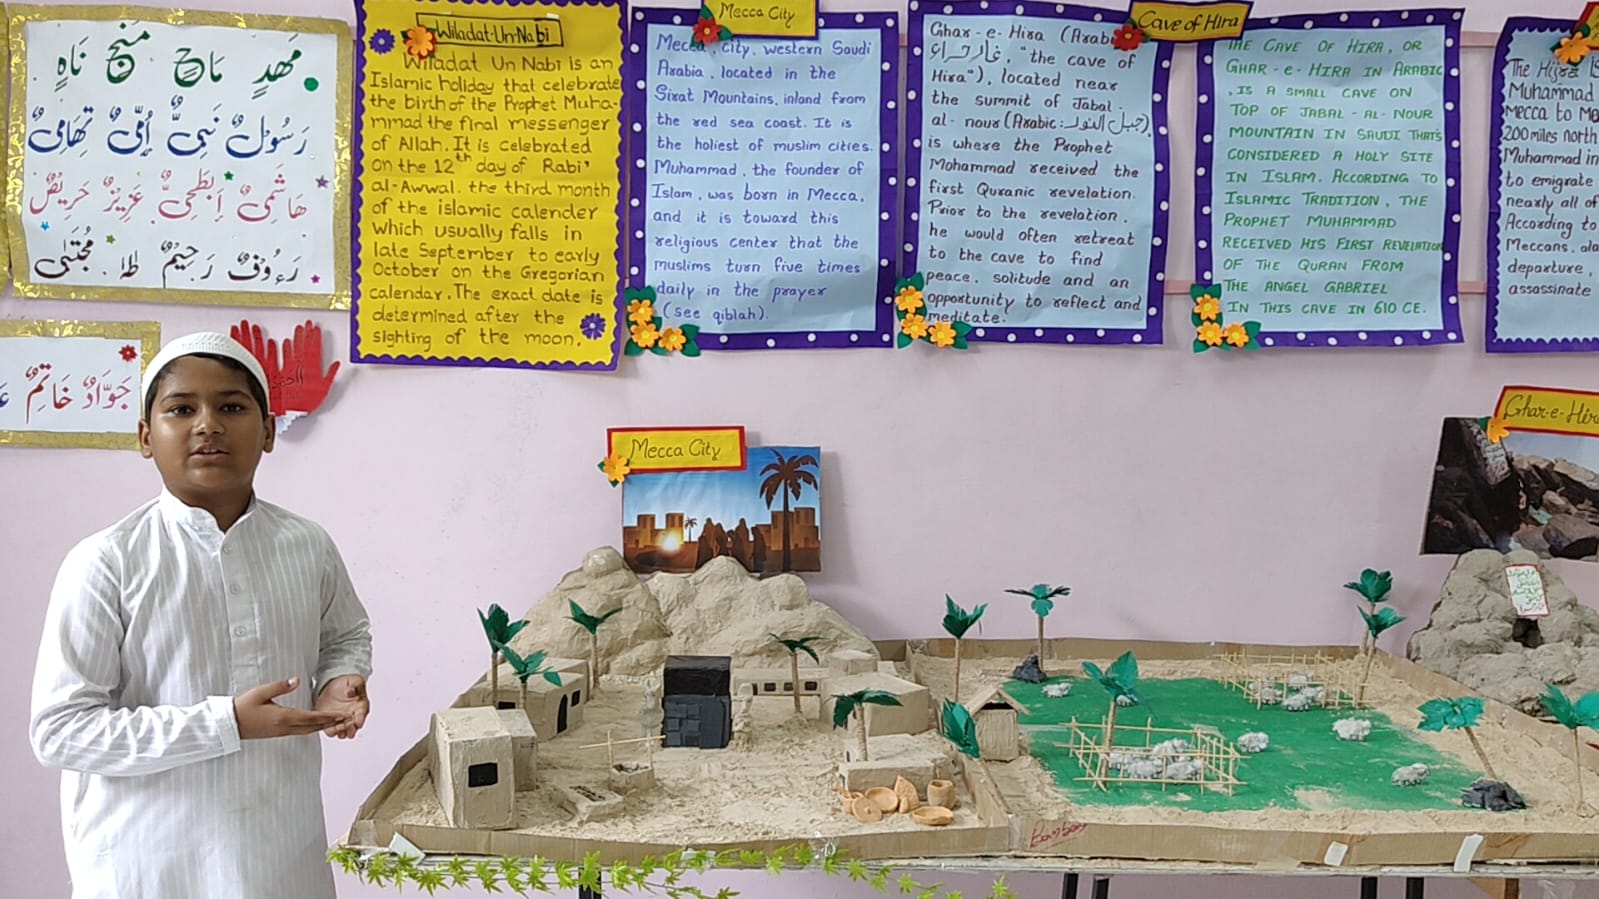 مَهْدٍ مَاحٍ مُنْجٍ نَاهٍ
رَسُوْلٌ نَبِىٌّ اُمِّىٌّ تِهَامِىٌّ
هَاشِمِىٌّ اِبْطَحِىٌّ عَزِيْزٌ حَرِيْصٌ
رَءُوْفٌ رَحِيْمٌ طٰهٰ مُجْتَبٰى
جَوَّادٌ خَاتِمٌ
Wiladat-Un-Nabi
Wiladat Un Nabi is an
Islamic holiday that celebrate
the birth of the Prophet Muha-
mmad the final messenger
of Allah. It is celebrated
on the 12th day of Rabi'
al-Awwal. the third month
of the islamic calender
which usually falls in
late September to early
October on the Gregorian
calendar. The exact date is
determined after the
sighting of the moon.
Mecca City
Mecca, city, western Saudi
Arabia, located in the
Sirat Mountains, inland from
the red sea coast. It is
the holiest of muslim cities.
Muhammad, the founder of
Islam, was born in Mecca,
and it is toward this
religious center that the
muslims turn five times
daily in the prayer
(see qiblah).
Ghar-e-Hira (Arab
غارحراء, "the cave of
Hira"), located near
the summit of Jabal-
al-nour (Arabic: جبل النور)
is where the Prophet
Mohammad received the
first Quranic revelation.
Prior to the revelation.
he would often retreat
to the cave to find
peace. solitude and an
opportunity to reflect and
meditate.
Cave of Hira
THE CAVE OF HIRA, OR
GHAR-E-HIRA IN ARABIC
, IS A SMALL CAVE ON
TOP OF JABAL-AL-NOUR
MOUNTAIN IN SAUDI THAT'S
CONSIDERED A HOLY SITE
IN ISLAM. ACCORDING TO
ISLAMIC TRADITION, THE
PROPHET MUHAMMAD
RECEIVED HIS FIRST REVELATION
OF THE QURAN FROM
THE ANGEL GABRIEL
IN THIS CAVE IN 610 CE.
The Hijra
Muhammad
Mecca to
200 miles north
Muhammad in
to emigrate
nearly all of
According to
Meccans,
departure,
assassinate
Mecca City
Ghar-e-Hira